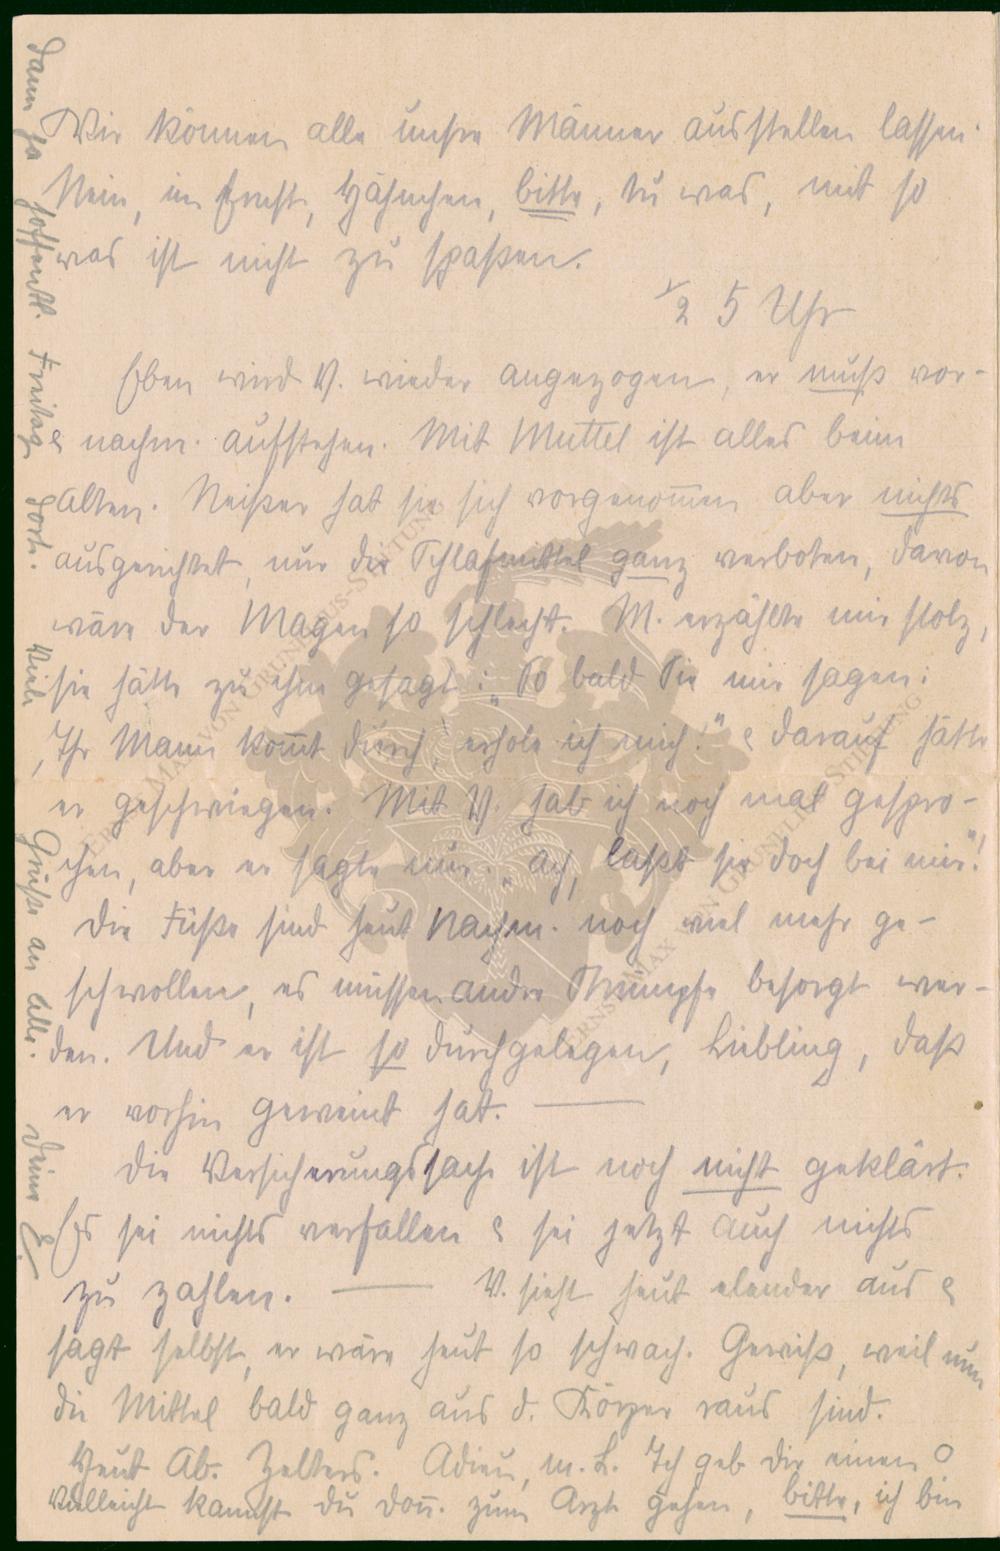 Wir können alle unsre Männer ausstellen lassen.
Nein, im Ernst, Hähnchen, bitte, tu was, mit so
was ist nicht zu spaßen.
1/2 5 Uhr
Eben wird V. wieder angezogen, er muß vor-
& nachm. aufstehen. Mit Muttel ist alles beim
Alten. Neißer hat sie sich vorgenom̅en aber nichts
ausgerichtet, nur die Schlafmittel ganz verboten, davon
wäre der Magen so schlecht. M. erzählte mir stolz,
sie hätte zu ihm gesagt: „So bald Sie mir sagen:
‚Ihr Mann kom̅t durch', erhole ich mich!" & darauf hätte
er geschwiegen. Mit V. hab ich noch mal gespro-
chen, aber er sagte nur: „Ach, laßt sie doch bei mir"!
Die Füße sind heut Nachm. noch viel mehr ge-
schwollen, es müssen andre Strümpfe besorgt wer-
den. Und er ist so durchgelegen, Liebling, daß
er vorhin geweint hat. —
Die Versicherungssache ist noch nicht geklärt.
Es sei nichts verfallen & sei jetzt auch nichts
zu zahlen. — V. sieht heut elender aus &
sagt selbst, er wäre heut so schwach. Gewiß, weil nun
die Mittel bald ganz aus d. Körper raus sind.
Heut Ab. Zelters. Adieu, m. L. Ich geb dir einen O
Vielleicht kannst du don̅. zum Arzt gehen, bitte, ich bin
dann ja hoffentl. Freitag dort. Viele Grüße an Alle. Deine E.
ERNST-MAX VON GRUNELIUS-STIFTUNG
ERNST-MAX VON GRUNELIUS-STIFTUNG